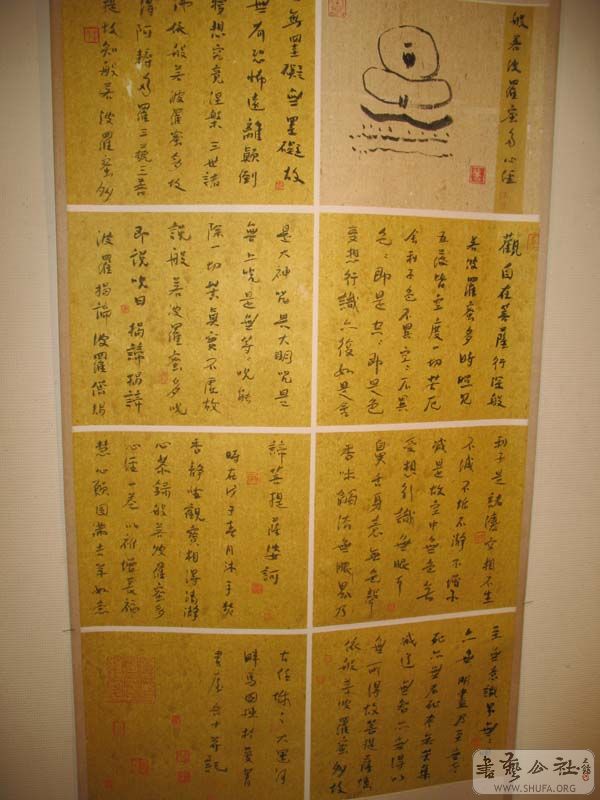 般若波羅蜜多心經
觀自在菩薩行深般
若波羅蜜多時照見
五蘊皆空度一切苦厄
舍利子色不異空々不異
色々即是空々即是色
受想行識亦復如是舍
利子是諸法空相不生
不滅不垢不淨不增不
減是故空中無色無
受想行識無眼耳
鼻舌身意無色聲
香味觸法無眼界乃
至無意識界無
明盡乃至
死亦無老死無苦集
滅道無智亦無得以
無所得故菩提薩埵
依般若波羅蜜多故
無罣礙無罣礙故
無有恐怖遠離顛倒
夢想究竟涅槃三世諸
佛依般若波羅蜜多故
得阿耨多羅三藐三菩
提故知般若波羅蜜多
是大神咒是大明咒是
無上咒是無等々咒能
除一切苦真實不虛故
說般若波羅蜜多咒
即說咒曰揭諦揭諦
波羅揭諦波羅僧揭
諦菩提薩婆訶
時在戊子春月沐手焚
香靜坐觀實相得清淨
心恭錄般若波羅蜜多
心經一卷以祈增長福
慧心願圓滿吉羊如意
古任城大運河
畔馬國於
書屋記
書藝公社
WWW.SHUFA.ORG